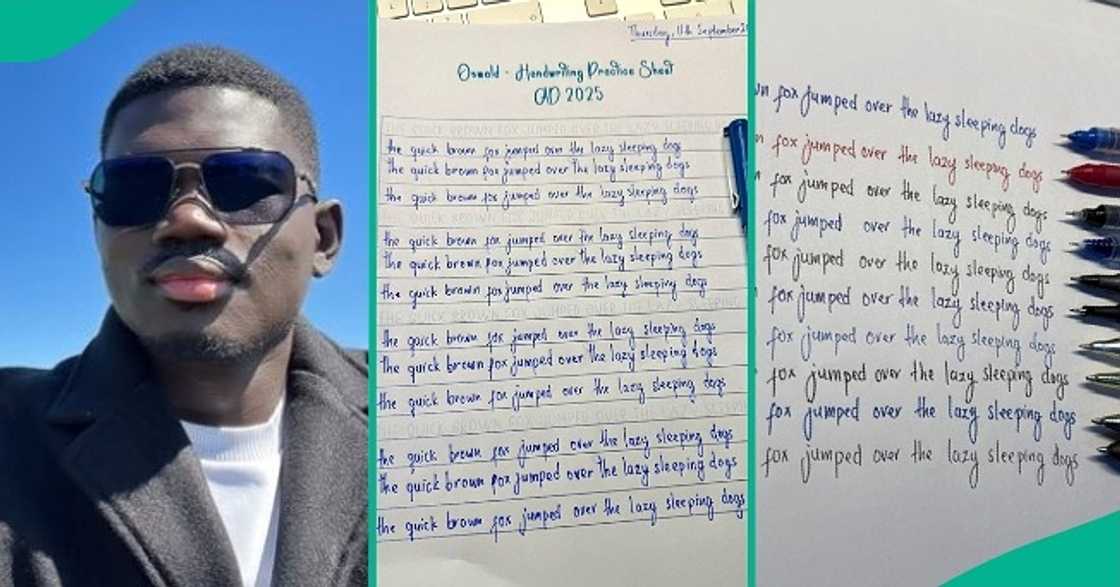 Thursday, 11th September
Oswald - Handwriting Practice Sheet
AD 2025
THE QUICK BROWN FOX JUMPED OVER THE LAZY SLEEPING
the quick brown fox jumped over the lazy sleeping dogs
the quick brown fox jumped over the lazy sleeping dogs
the quick brown fox jumped over the lazy sleeping dogs
THE QUICK BROWN FOX JUMPED OVER THE LAZY SLEEPING
the quick brown fox jumped over the lazy sleeping dogs
the quick brown fox jumped over the lazy sleeping dogs
the quick brown fox jumped over the lazy sleeping dogs
THE QUICK BROWN FOX JUMPED OVER THE LAZY SLEEPING
the quick brown fox jumped over the lazy sleeping dogs
the quick brown fox jumped over the lazy sleeping dogs
the quick brown fox jumped over the lazy sleeping dogs
THE QUICK BROWN FOX JUMPED OVER THE LAZY SLEEPING
the quick brown fox jumped over the lazy sleeping dogs
the quick brown fox jumped over the lazy sleeping dogs
the quick brown fox jumped over the lazy sleeping dogs
fox jumped over the lazy sleeping dogs
fox jumped over the lazy sleeping dogs
fox jumped over the lazy sleeping dogs
fox jumped over the lazy sleeping dogs
fox jumped over the lazy sleeping dogs
fox jumped over the lazy sleeping dogs
fox jumped over the lazy sleeping dogs
fox jumped over the lazy sleeping dogs
fox jumped over the lazy sleeping dogs
fox jumped over the lazy sleeping dogs